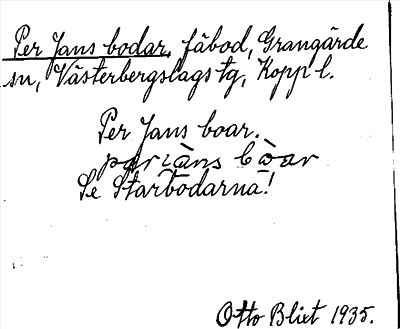 Per Jans bodar, fäbod, Grangärde
sn, Västerbergslags tg, Kopp l.
Per Jans boar.
pær ià̱ns bò̱ar
Se Starbodarna!
Otto Blixt 1935.